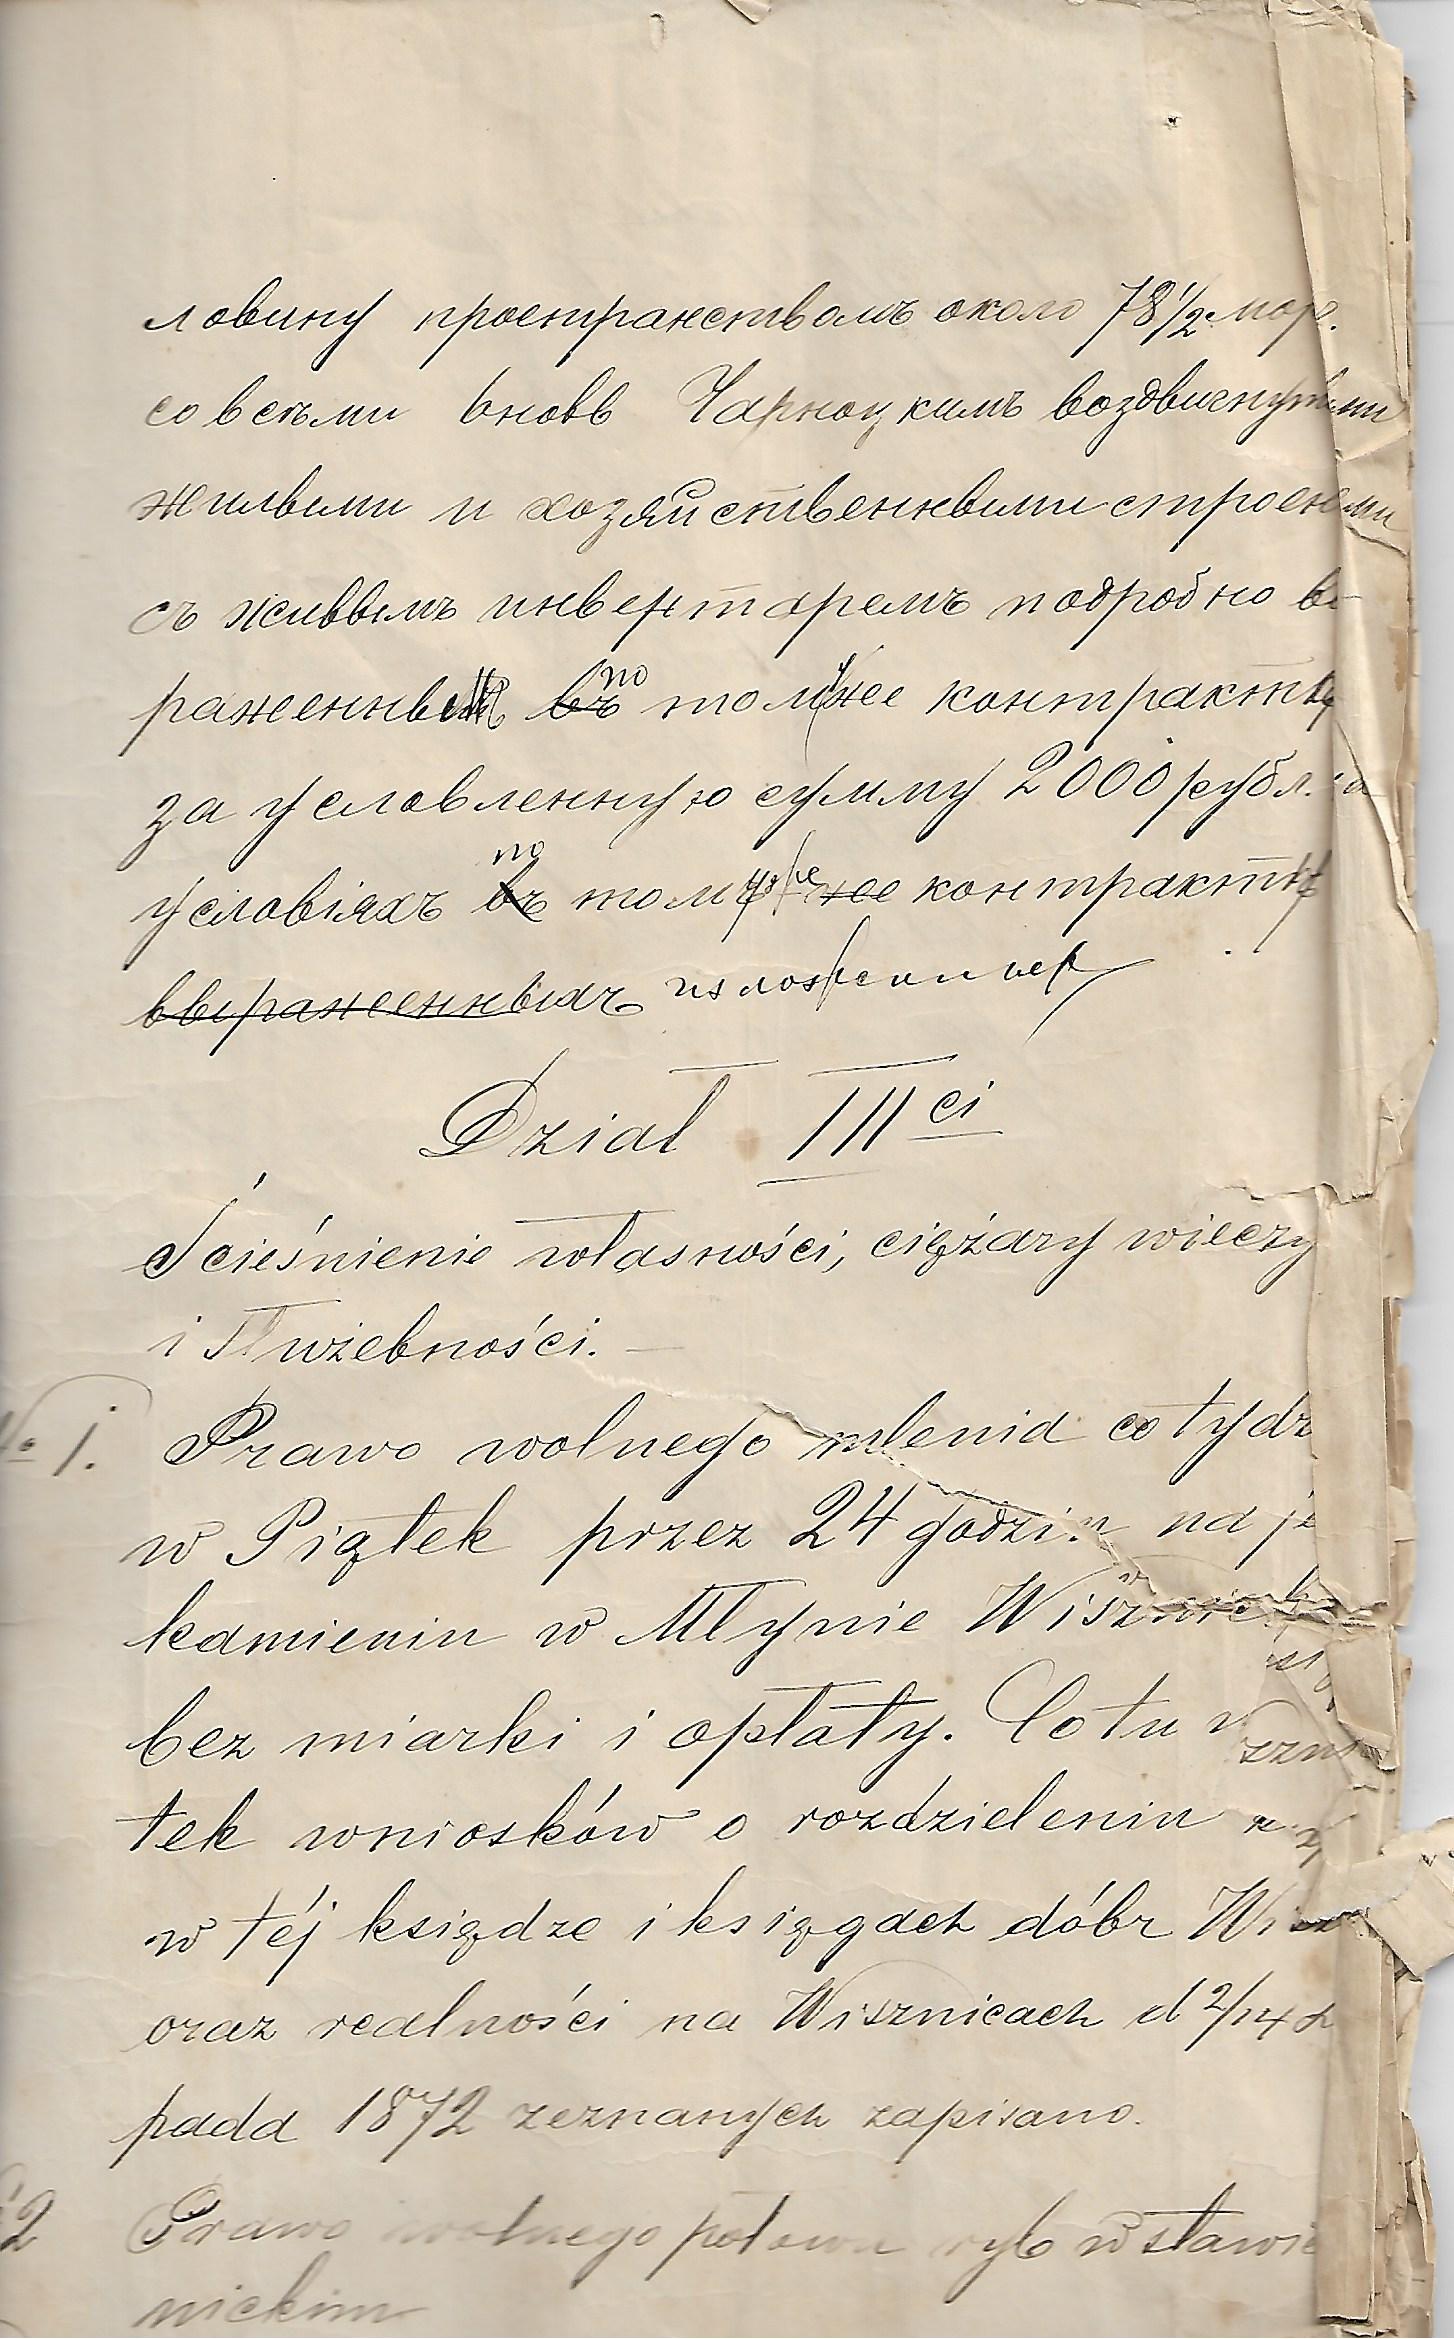 ловину пространствомъ около 78 1/2 морг.
со всѣми вновь Чарноцкимъ воздвигнутыми
жилыми и хозяйственными строеніями
съ живымъ инвентаремъ подробно вы-
раженнымъ въ по томуже контракту
за условленную сумму 2000 рубл. на
условіяхъ въ по томуже же контракту
выраженныхъ изложенныхъ
Dział III ci
Ścieśnienie własności, ciężary wieczy
i Służebności.
№ 1. Prawo wolnego mlenia co tydz
w Piątek przez 24 godzin na je
kamieniu w Młynie Wisznic
bez miarki i opłaty. Co tu w
tek wniosków o rozdzieleniu
w téj księdze i księgach dóbr Wisz
oraz realności na Wisznicach d 2/14 L
pada 1872 zeznanych zapisano.
2 Prawo wolnego połowu ryb w stawie
nickim